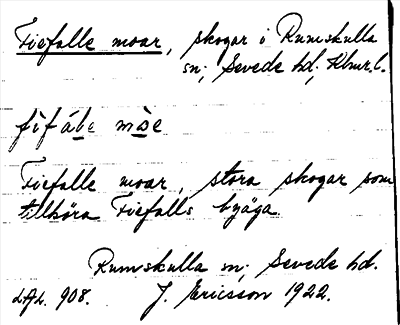 Fiefalle moar, skogar i Rumskulla
sn; Sevede hd; Klmr l.
fìfábe màse
Fiefalle moar, stora skogar som
tillhöra Fiefalls byäga
Rumskulla sn; Sevede hd.
LAL. 908. J. Ericsson 1922.